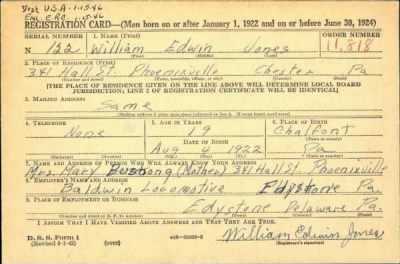 Dist U.S.A - 1-15-46
Enl. E.R.C. 1-15-46
REGISTRATION CARD—(Men born on or after January 1, 1922 and on or before June 30, 1924)
SERIAL NUMBER 1. NAME (Print) ORDER NUMBER
N 122 William Edwin Jones 11,818
(First) (Middle) (Last)
2. PLACE OF RESIDENCE (Print)
341 Hall St. Phoenixville Chester Pa
(Number and street) (Town, township, village, or city) (County) (State)
[THE PLACE OF RESIDENCE GIVEN ON THE LINE ABOVE WILL DETERMINE LOCAL BOARD
JURISDICTION; LINE 2 OF REGISTRATION CERTIFICATE WILL BE IDENTICAL]
3. MAILING ADDRESS
Same
(Mailing address if other than place indicated on line 2. If same insert word same)
4. TELEPHONE 5. AGE IN YEARS 6. PLACE OF BIRTH
None 19 Chalfont
DATE OF BIRTH
Aug 4 1922 Pa
7. NAME AND ADDRESS OF PERSON WHO WILL ALWAYS KNOW YOUR ADDRESS
Mrs. Mary (Mother) 341 Hall St. Phoenixville
8. EMPLOYER'S NAME AND ADDRESS
Baldwin Locomotive Edystone Pa.
9. PLACE OF EMPLOYMENT OR BUSINESS
Edystone Delaware Pa.
(Number and street or R. F. D. number) (Town) (County) (State)
I AFFIRM THAT I HAVE VERIFIED ABOVE ANSWERS AND THAT THEY ARE TRUE.
D. S. S. Form 1
(Revised 6-1-42) (over) William Edwin Jones
(Registrant's signature)